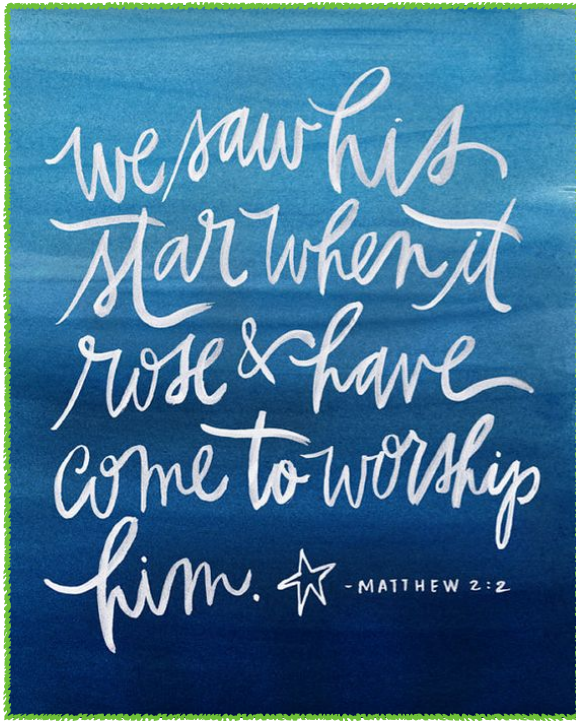 we saw his
star when it
rose & have
come to worship
him. -MATTHEW 2:2